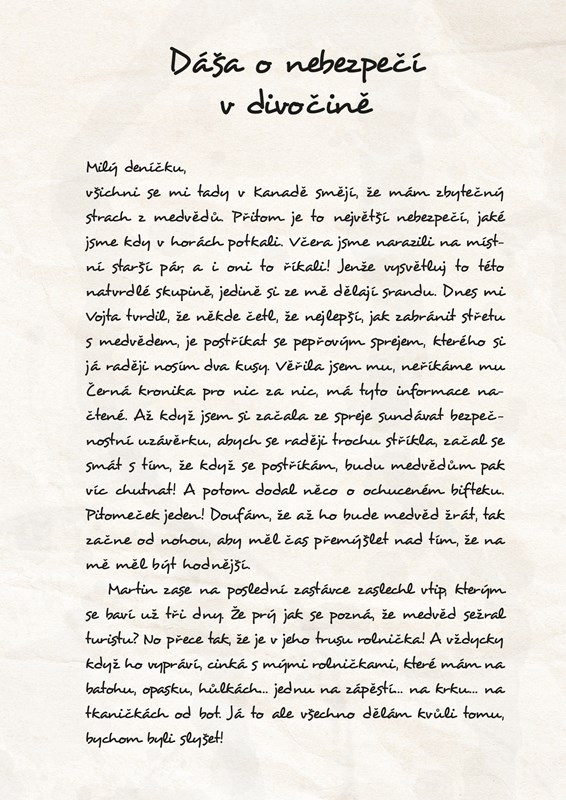 Dáša o nebezpečí
v divočině
Milý deníčku,
všichni se mi tady v Kanadě smějí, že mám zbytečný
strach z medvědů. Přitom je to největší nebezpečí, jaké
jsme kdy v horách potkali. Včera jsme narazili na míst-
ní starší pár, a i oni to říkali! Jenže vysvětluj to této
natvrdlé skupině, jedině si ze mě dělají srandu. Dnes mi
Vojta tvrdil, že někde četl, že nejlepší, jak zabránit střetu
s medvědem, je postříkat se pepřovým sprejem, kterého si
já raději nosím dva kusy. Věřila jsem mu, neříkáme mu
Černá kronika pro nic za nic, má tyto informace na-
čtené. Až když jsem si začala ze spreje sundávat bezpeč-
nostní uzávěrku, abych se raději trochu stříkla, začal se
smát s tím, že když se postříkám, budu medvědům pak
víc chutnat! A potom dodal něco o ochuceném bifteku.
Pitomeček jeden! Doufám, že až ho bude medvěd žrát, tak
začne od nohou, aby měl čas přemýšlet nad tím, že na
mě měl být hodnější.
Martin zase na poslední zastávce zaslechl vtip, kterým
se baví už tři dny. Že prý jak se pozná, že medvěd sežral
turistu? No přece tak, že je v jeho trusu rolnička! A vždycky
když ho vypráví, cinká s mými rolničkami, které mám na
batohu, opasku, hůlkách... jednu na zápěstí... na krku... na
tkaničkách od bot. Já to ale všechno dělám kvůli tomu,
bychom byli slyšet!